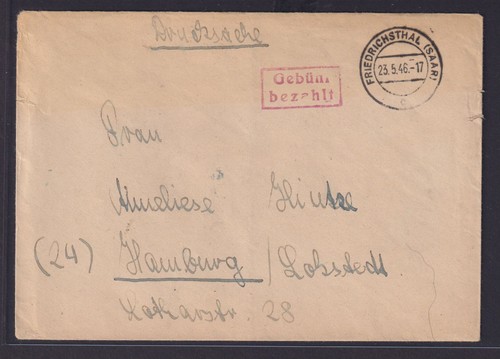 Drucksache
Gebühr
bezahlt
FRIEDRICHSTHAL (SAAR)
23.5.46.-17
c
Frau
Anneliese Hintze
(24) Hamburg / Lokstedt
Lotharstr. 28